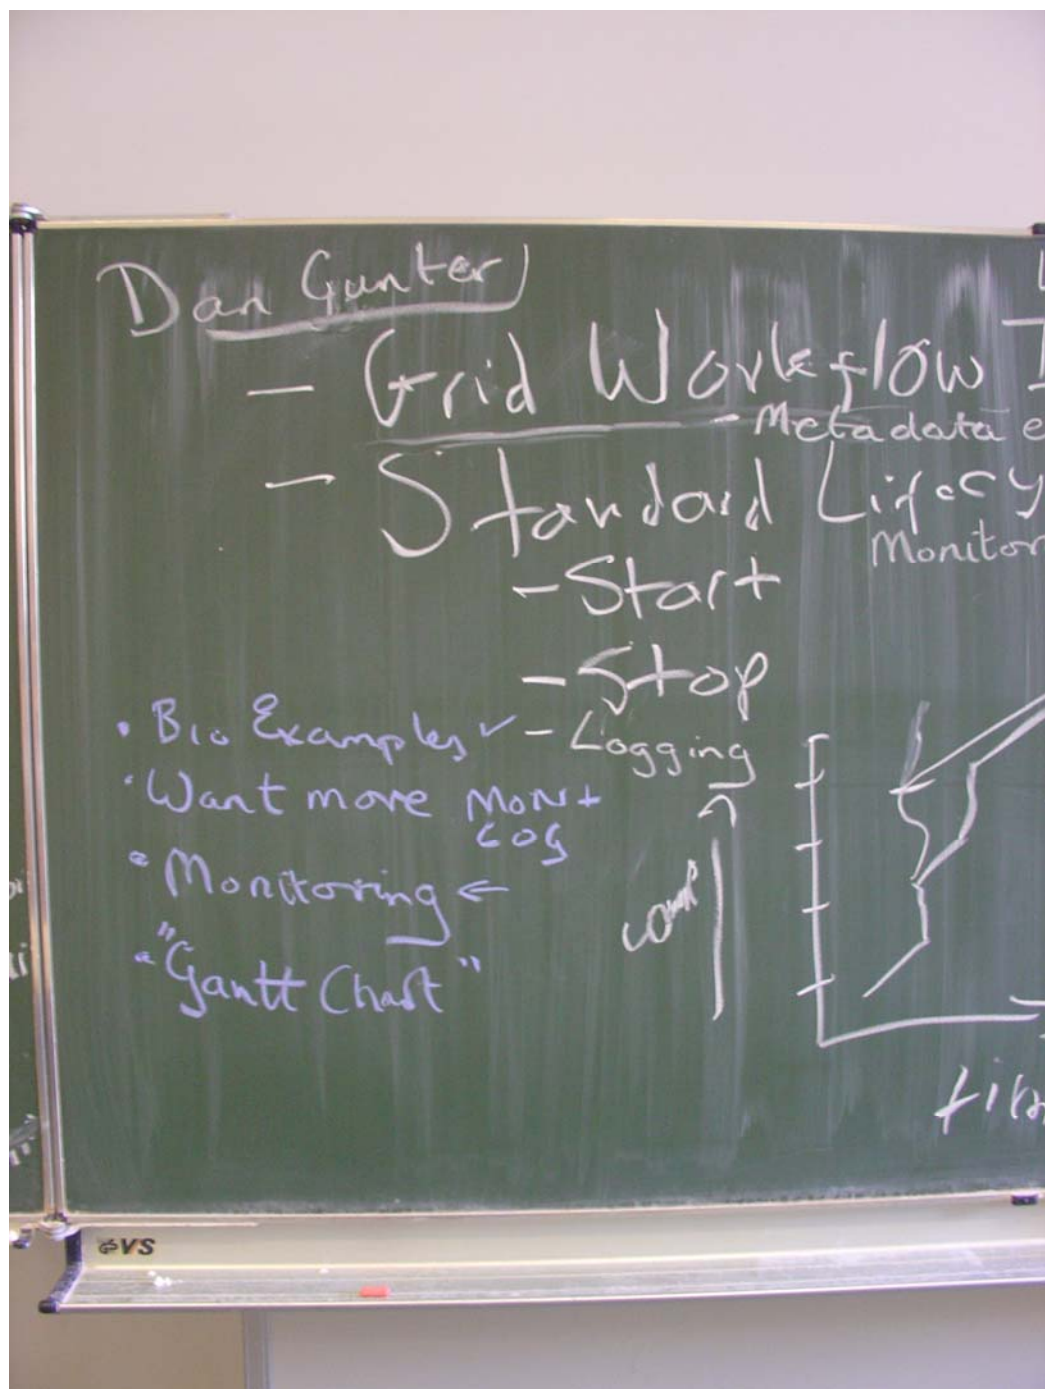 Dan Gunter
- Grid Workflow
- Metadata
- Standard Lifecy
Monitor
- Start
- Stop
- Logging
• Bio Examples ✓
• Want more MON +
LOG
• Monitoring ←
• "Gantt Chart"
VS